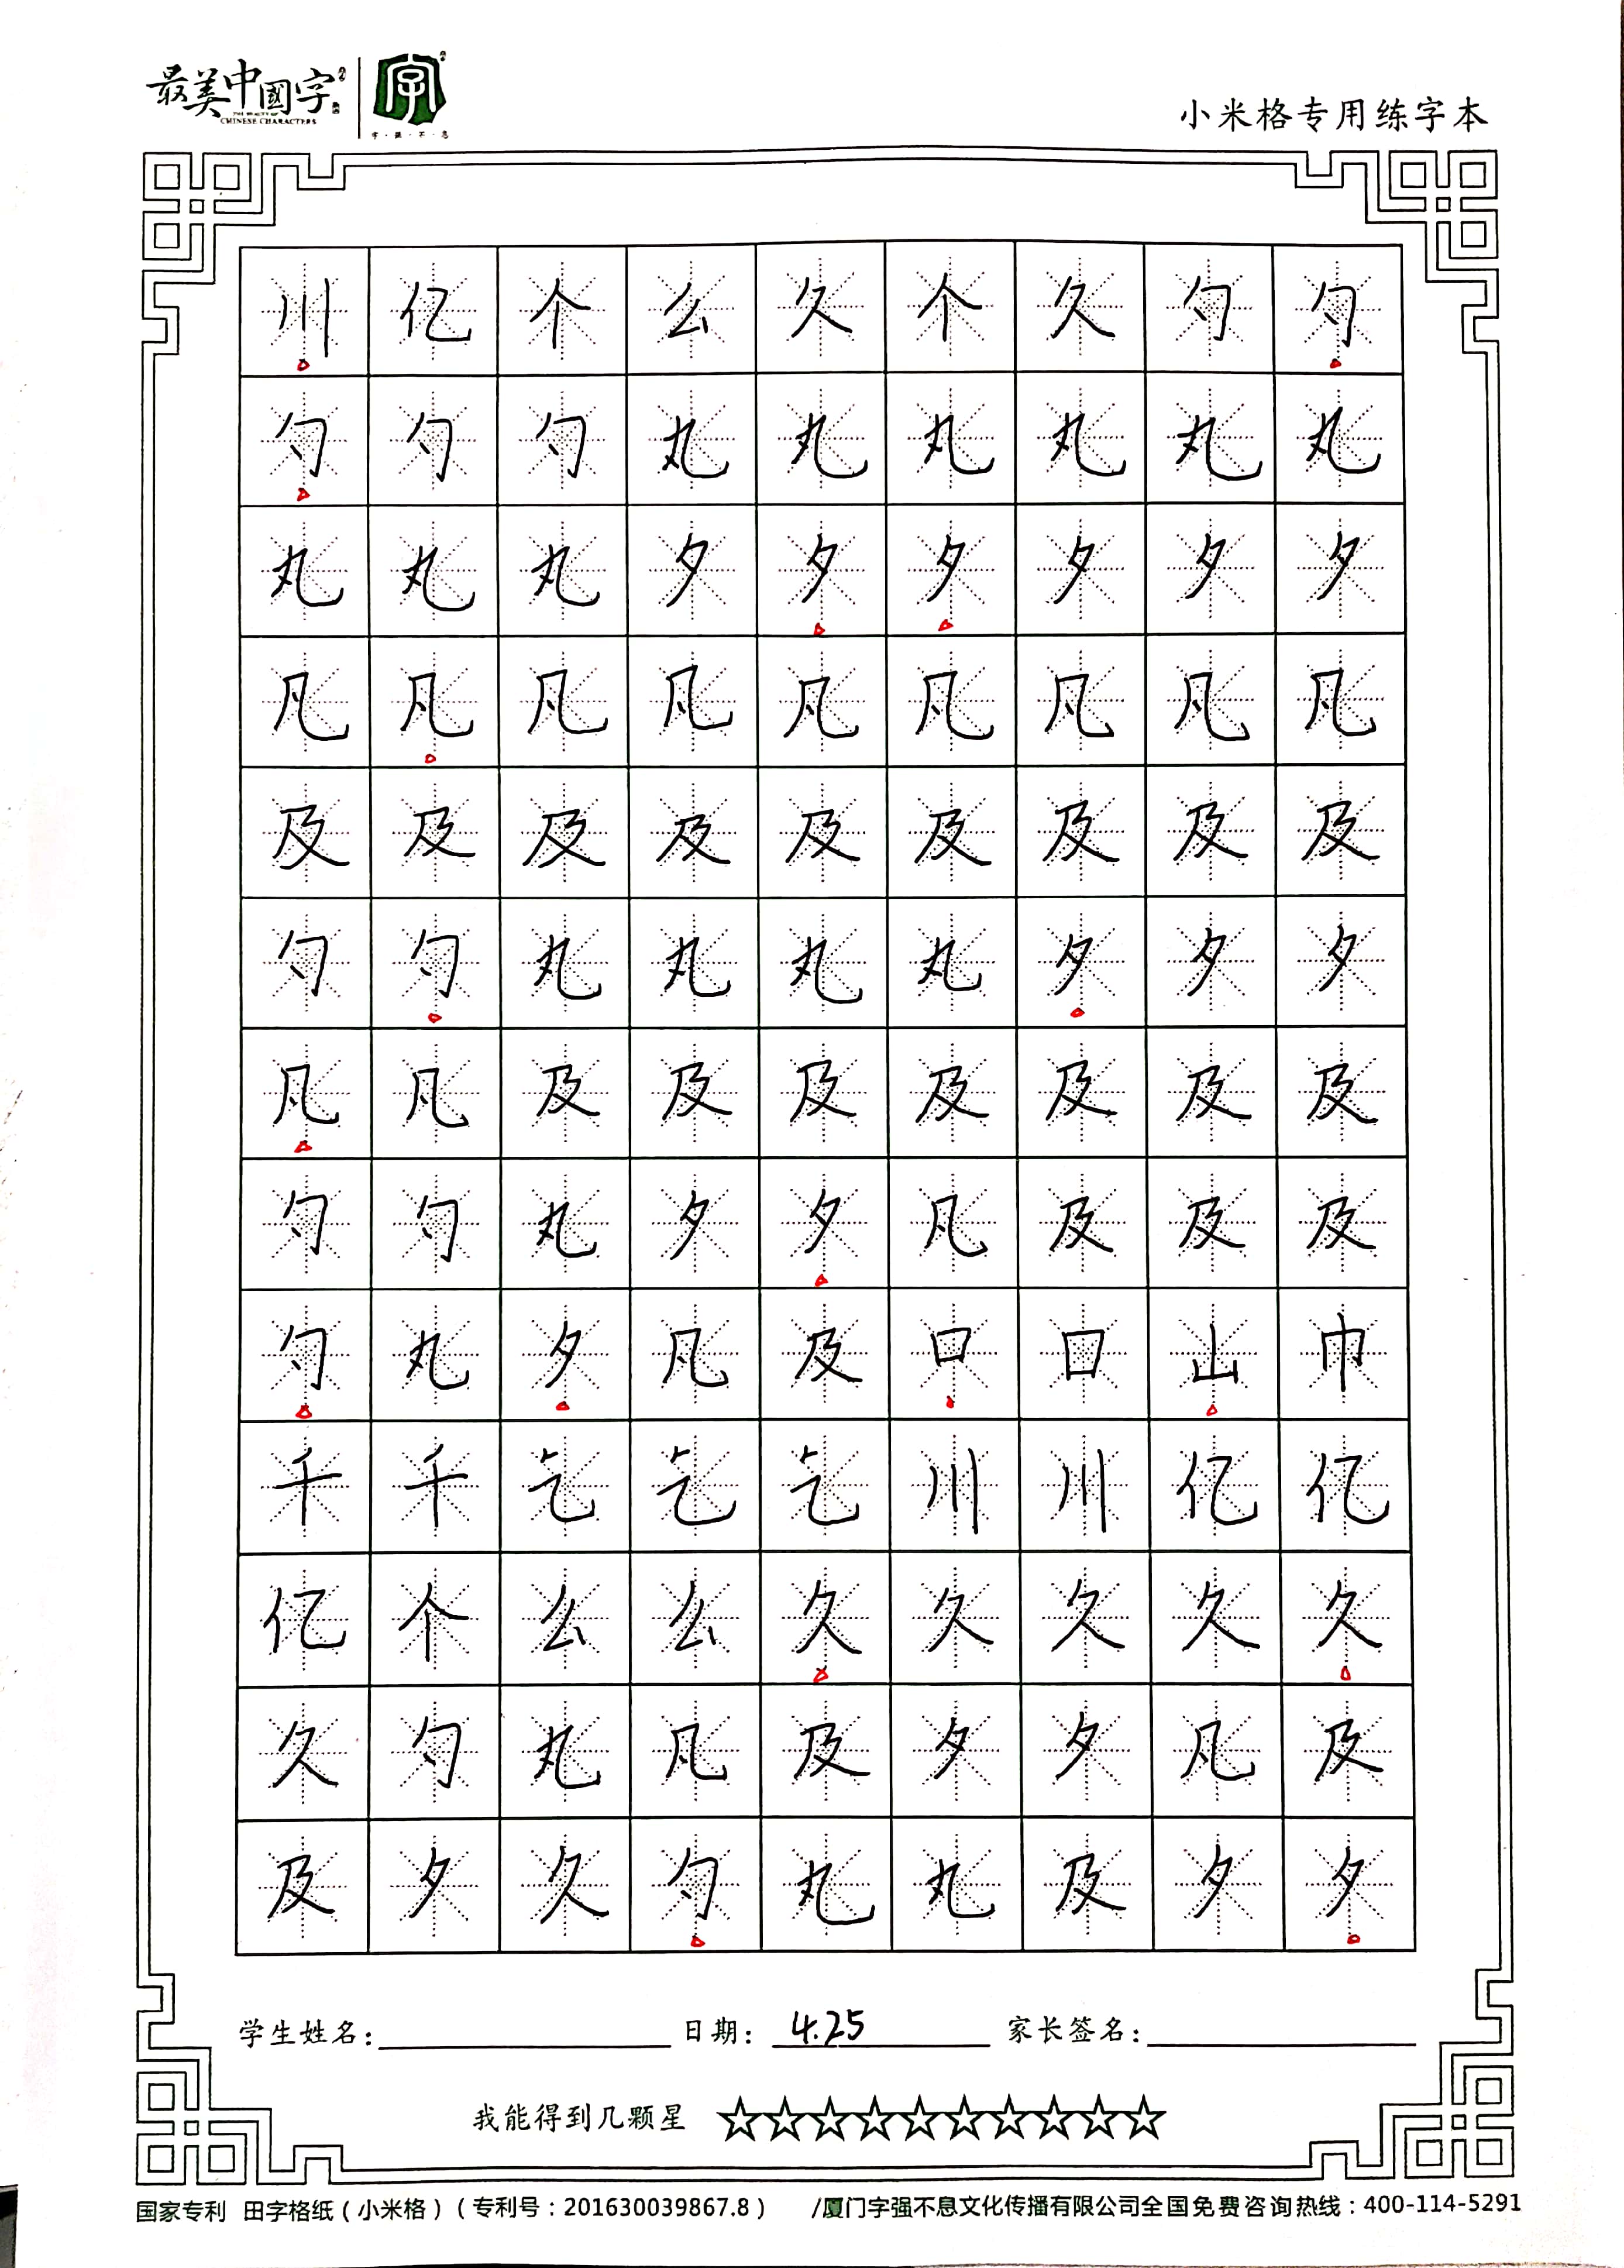 最美中國字
CHINESE CHARACTERS
字
字·强·不·息
小米格专用练字本
川亿个么久个久勺勺
勺勺勺丸丸丸丸丸丸
丸丸丸夕夕夕夕夕夕
凡凡凡凡凡凡凡凡凡
及及及及及及及及及
勺勺丸丸丸丸夕夕夕
凡凡及及及及及及及
勺勺丸夕夕凡及及及
勺丸夕凡及口口山巾
千千乞乞乞川川亿亿
亿个么么久久久久久
久勺丸凡及夕夕凡及
及夕久勺丸丸及夕夕
学生姓名： 日期：4.25 家长签名：
我能得到几颗星 ☆☆☆☆☆☆☆☆☆☆
国家专利 田字格纸（小米格）（专利号：201630039867.8） /厦门字强不息文化传播有限公司全国免费咨询热线：400-114-5291